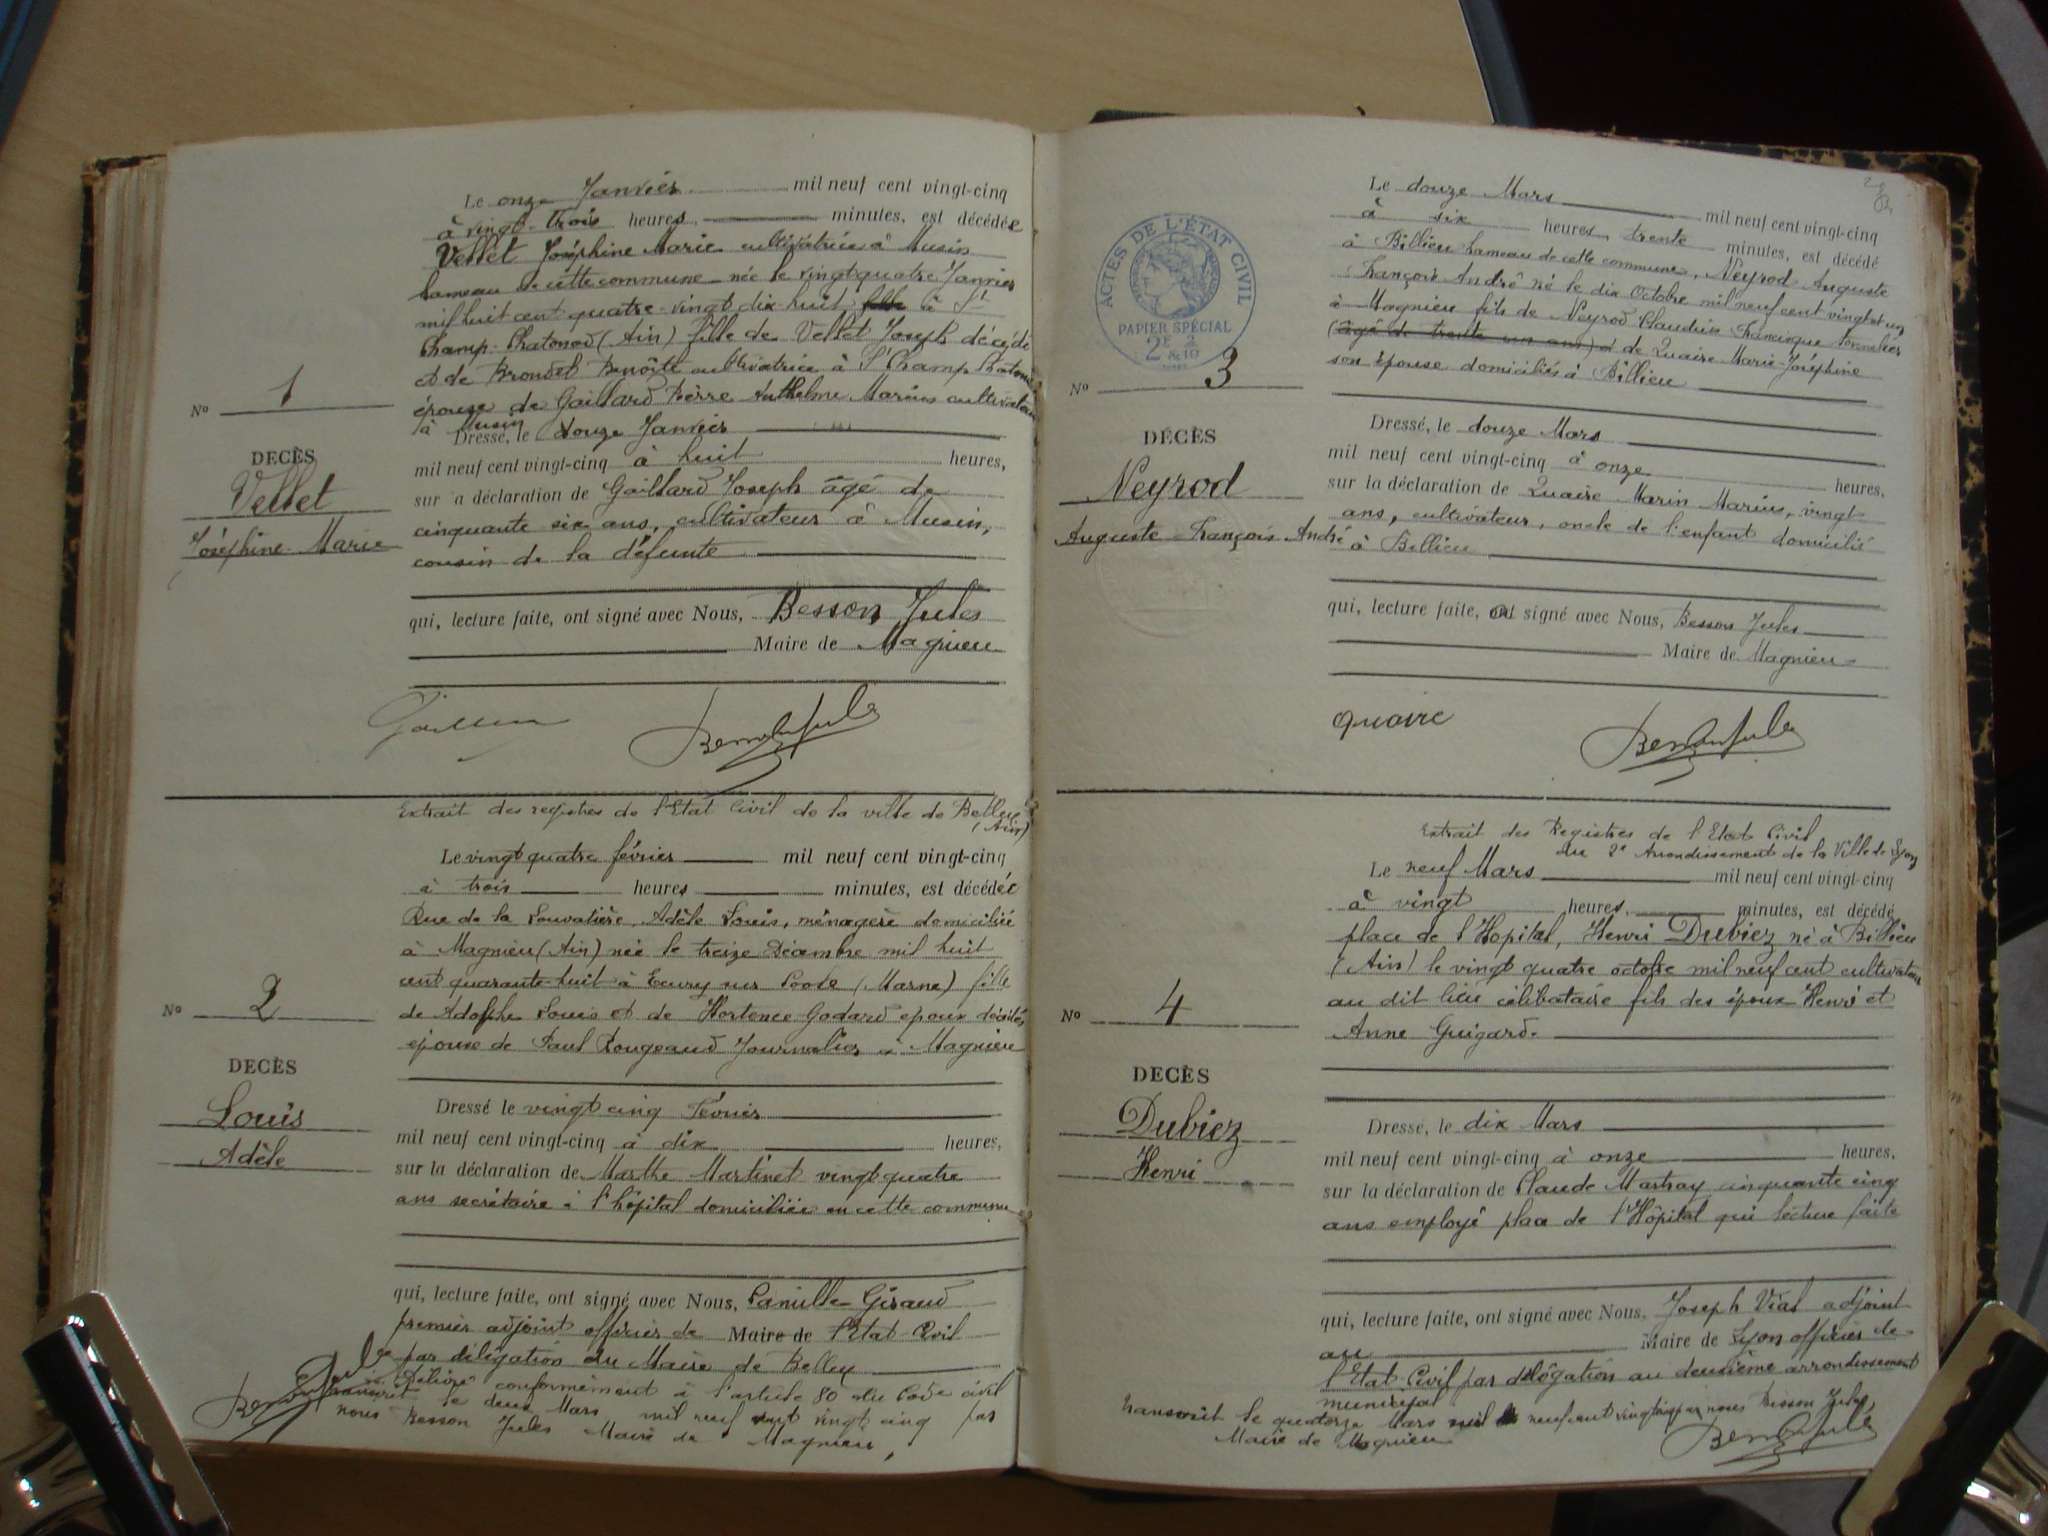 Le onze Janvier mil neuf cent vingt-cinq
à vingt-trois heures minutes, est décédée
Vellet Joséphine Marie cultivatrice à Musin
hameau de cette commune née le vingt quatre Janvier
mil huit cent quatre-vingt dix-huit à St
Champ-Chatonod (Ain) fille de Vellet Joseph décédé
et de Brondel Benoîte cultivatrice à St Champ Chatonod
épouse de Gaillard Pierre Anthelme Marius cultivateur
à Musin
Dressé, le douze Janvier
mil neuf cent vingt-cinq à huit heures,
sur a déclaration de Gaillard Joseph âgé de
cinquante six ans, cultivateur à Musin,
cousin de la défunte
qui, lecture faite, ont signé avec Nous, Besson Jules
Maire de Magnieu
No 1
DECÈS
Vellet
Joséphine Marie
Extrait des registres de l'Etat Civil de la ville de Belley
(Ain)
Le vingt quatre février mil neuf cent vingt-cinq
à trois heures minutes, est décédée
Rue de la Louvatière, Adèle Louis, ménagère domiciliée
à Magnieu (Ain) née le treize Décembre mil huit
cent quarante-huit à Ecury sur Coole (Marne) fille
de Adolphe Louis et de Hortence Godard epoux décédés
épouse de Paul Rougeaud Journalier à Magnieu
No 2
DECÈS
Louis
Adèle
Dressé le vingt cinq Février
mil neuf cent vingt-cinq à dix heures,
sur la déclaration de Marthe Martinet vingt quatre
ans secrétaire à l'hôpital domiciliée en cette commune
qui, lecture faite, ont signé avec Nous, Camille Giraud
premier adjoint officier de Maire de l'Etat-Civil
par délégation du Maire de Belley
Délivré conformément à l'article 80 du Code civil
Transcrit le deux Mars mil neuf cent vingt cinq par
nous Besson Jules Maire de Magnieu,
ACTES DE L'ÉTAT CIVIL
PAPIER SPÉCIAL
2E
Le douze Mars mil neuf cent vingt-cinq
à six heures trente minutes, est décédé
à Billieu hameau de cette commune, Neyrod Auguste
François André né le dix Octobre mil neuf cent vingt et un
à Magnieu fils de Neyrod Claudius Francisque
(âgé de trente un ans) et de Quaire Marie-Joséphine
son épouse domiciliés à Billieu
No 3
DÉCÈS
Neyrod
Auguste François André
Dressé, le douze Mars
mil neuf cent vingt-cinq à onze heures,
sur la déclaration de Quaire Marin Marius, vingt
ans, cultivateur, oncle de l'enfant domicilié
à Billieu
qui, lecture faite, ont signé avec Nous, Besson Jules
Maire de Magnieu
quaire
Extrait des Registres de l'Etat Civil
du 2e Arrondissement de la Ville de Lyon
Le neuf Mars mil neuf cent vingt-cinq
à vingt heures, minutes, est décédé
place de l'Hopital, Henri Dubiez né à Billieu
(Ain) le vingt quatre octobre mil neuf cent cultivateur
au dit lieu célibataire fils des époux Henri et
Anne Guigard.
No 4
DECÈS
Dubiez
Henri
Dressé, le dix Mars
mil neuf cent vingt-cinq à onze heures.
sur la déclaration de Claude Martray cinquante cinq
ans employé place de l'Hôpital qui lecture faite
qui, lecture faite, ont signé avec Nous, Joseph Vial adjoint
au Maire de Lyon officier de
l'Etat-Civil par délégation au deuxième arrondissement
municipal
Transcrit le quatorze Mars mil neuf cent vingt cinq par nous Besson Jules,
Maire de Magnieu